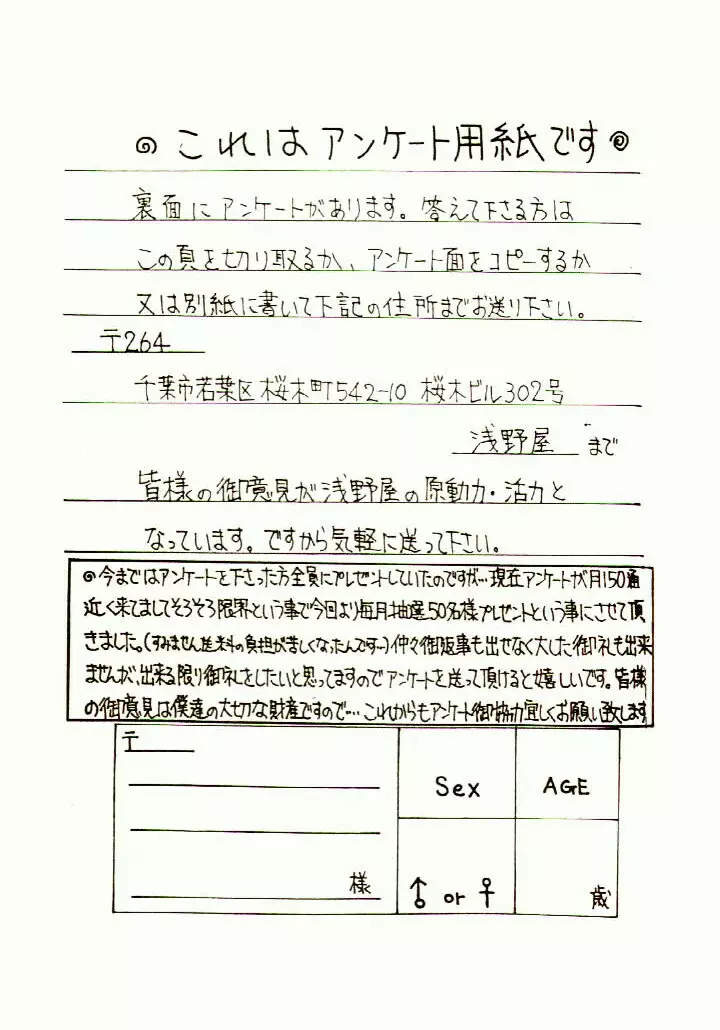 これはアンケート用紙です
裏面にアンケートがあります。答えて下さる方は
この頁を切り取るか、アンケート面をコピーするか
又は別紙に書いて下記の住所までお送り下さい。
〒264
千葉市若葉区桜木町542-10 桜木ビル302号
浅野屋 まで
皆様の御意見が浅野屋の原動力・活力と
なっています。ですから気軽に送って下さい。
◎今まではアンケートを下さった方全員にプレゼントしていたのですが…現在アンケートが月150通
近く来てましてそろそろ限界という事で今日より毎月抽選50名様プレゼントという事にさせて頂
きました。(すみません送料の負担が苦しくなったんです〜)仲々御返事も出せなく大した御礼も出来
ませんが、出来る限り御礼をしたいと思ってますのでアンケートを送って頂けると嬉しいです。皆様
の御意見は僕達の大切な財産ですので…これからもアンケート御協力宜しくお願い致します
〒
Sex AGE
様
♂ or ♀
歳